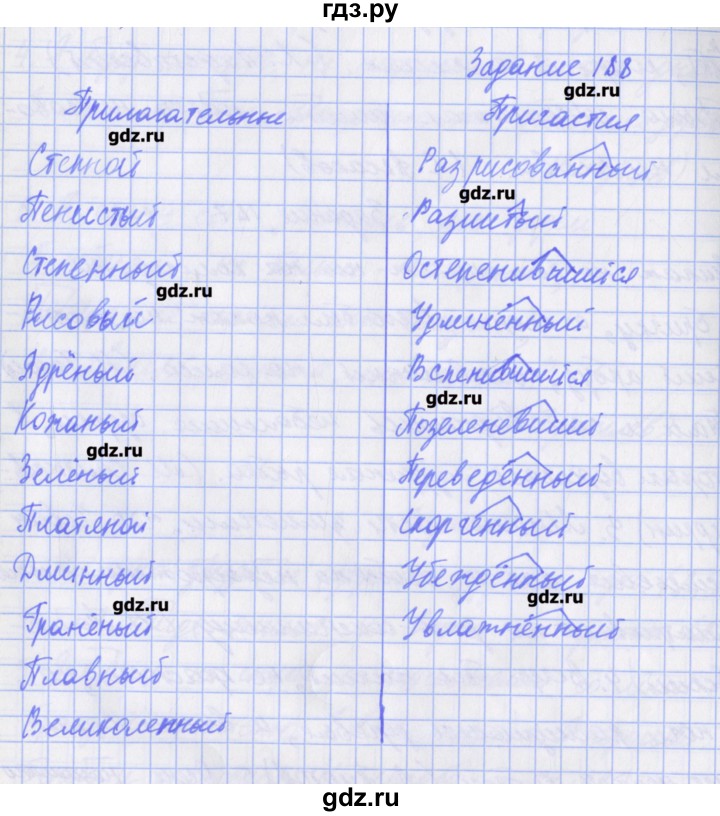 гдз.ру
Задание 188
gdz.ru
Прилагательные
Причастия
gdz.ru
Степной
Разрисованный
gdz.ru
Пенистый
Размытый
Степенный
Остепенившийся
gdz.ru
Рисовый
Удлинённый
Ядрёный
Вспенившийся
gdz.ru
Кожаный
Позеленевший
gdz.ru
Зелёный
Переведённый
Платяной
Скорченный
Длинный
Убеждённый
gdz.ru
gdz.ru
Гранёный
Увлажнённый
Плавный
Великолепный
gdz.ru